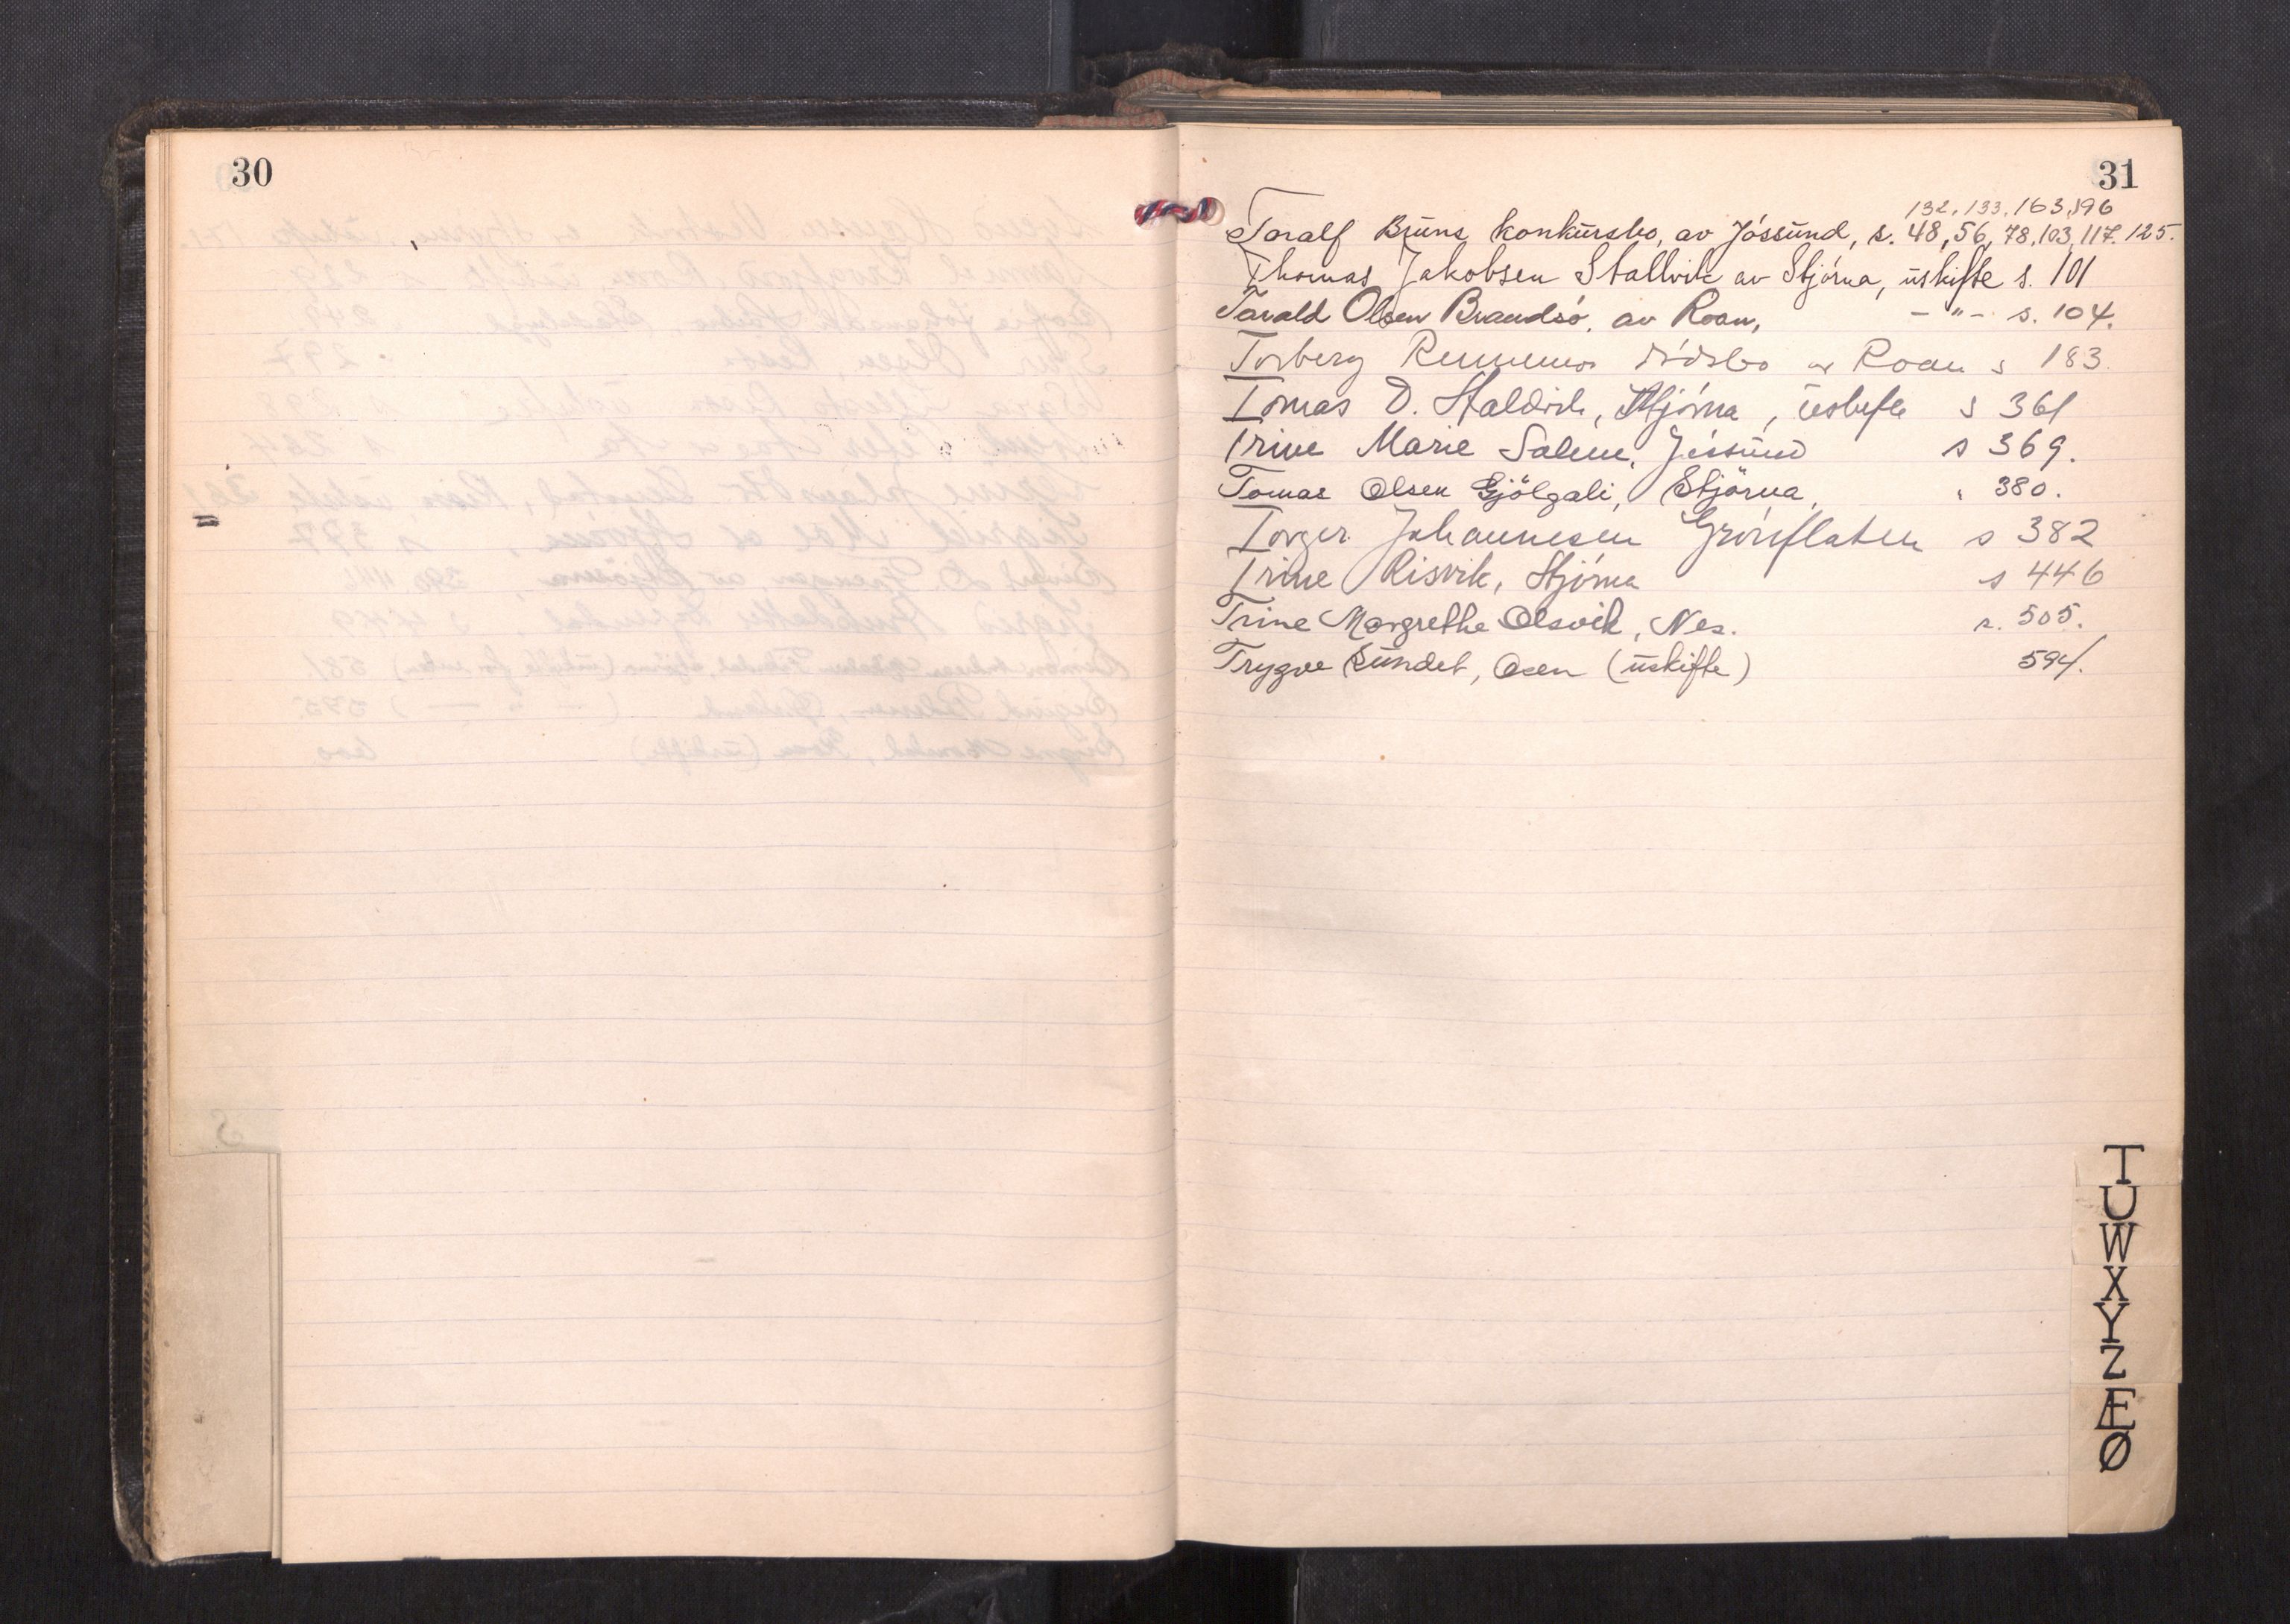 30
31
132, 133, 163, 196
Taralf Bruns konkursbo, av Jössund, s. 48, 56, 78, 103, 117. 125.
Thomas Jakobsen Stallvik av Stjörna, uskifte s. 101
Tarald Olsen Brandsö, av Roan, - " - s. 104.
Torberg dödsbo av Roan s 183.
Tomas D. Staldvik, Stjörna, uskifte s 361
Trine Marie Salene, Jössund s 369.
Tomas Olsen Gjölgali, Stjörna, " 380.
Torger Johannesen Grönflaten s 382
Trine Risvik, Stjörna s 446
Trine Margrethe Olsvik, Nes. s. 505.
Trygve Sundet, Osen (uskifte) 594.
S
T
U
W
X
Y
Z
Æ
Ø